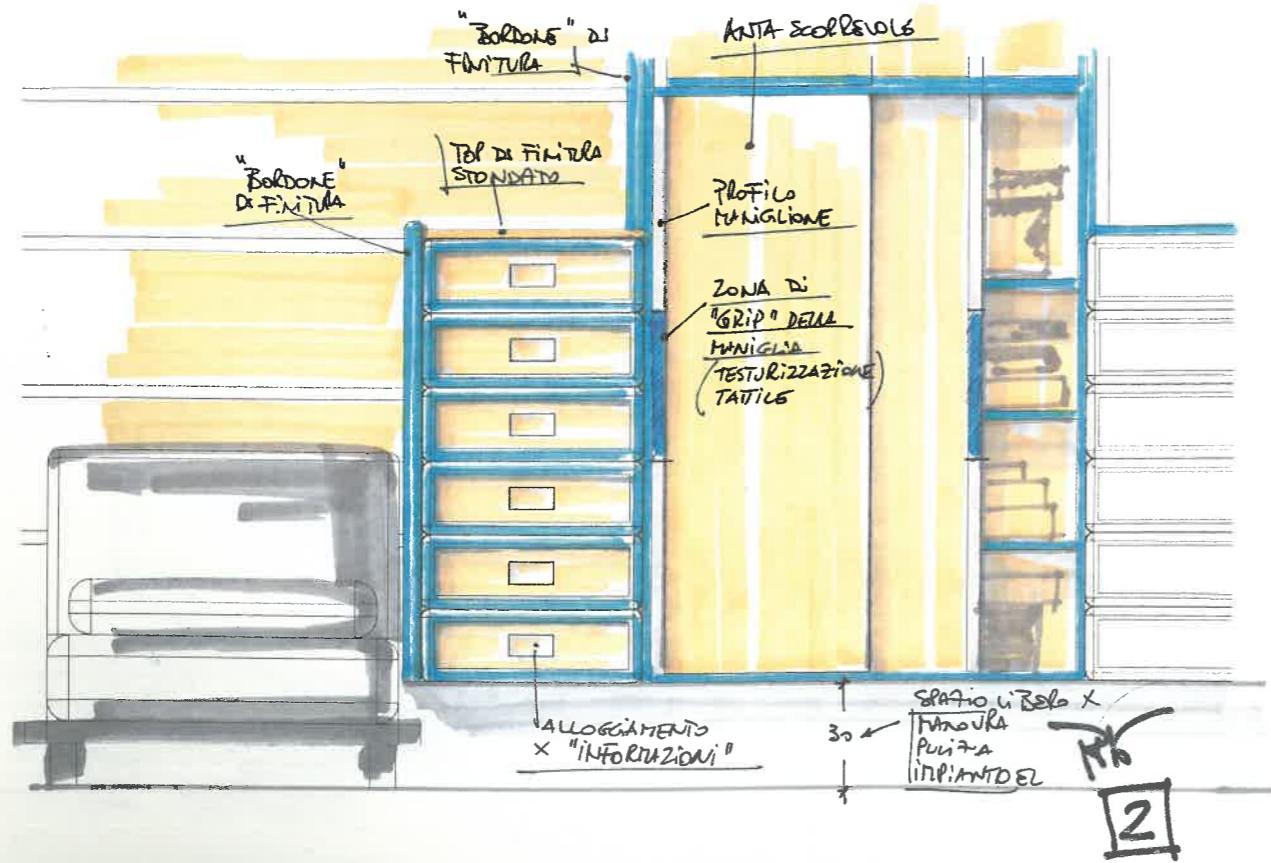 "BORDONE" DI
FINITURA
ANTA SCORREVOLE
TOP DI FINITURA
STONDATO
"BORDONE"
DI FINITURA
PROFILO
MANIGLIONE
ZONA DI
"GRIP" DELLA
MANIGLIA
(TESTURIZZAZIONE
TATTILE)
ALLOGGIAMENTO
X "INFORMAZIONI"
30
SPAZIO LIBERO X
MANOVRA
PULIZIA
IMPIANTO EL
2